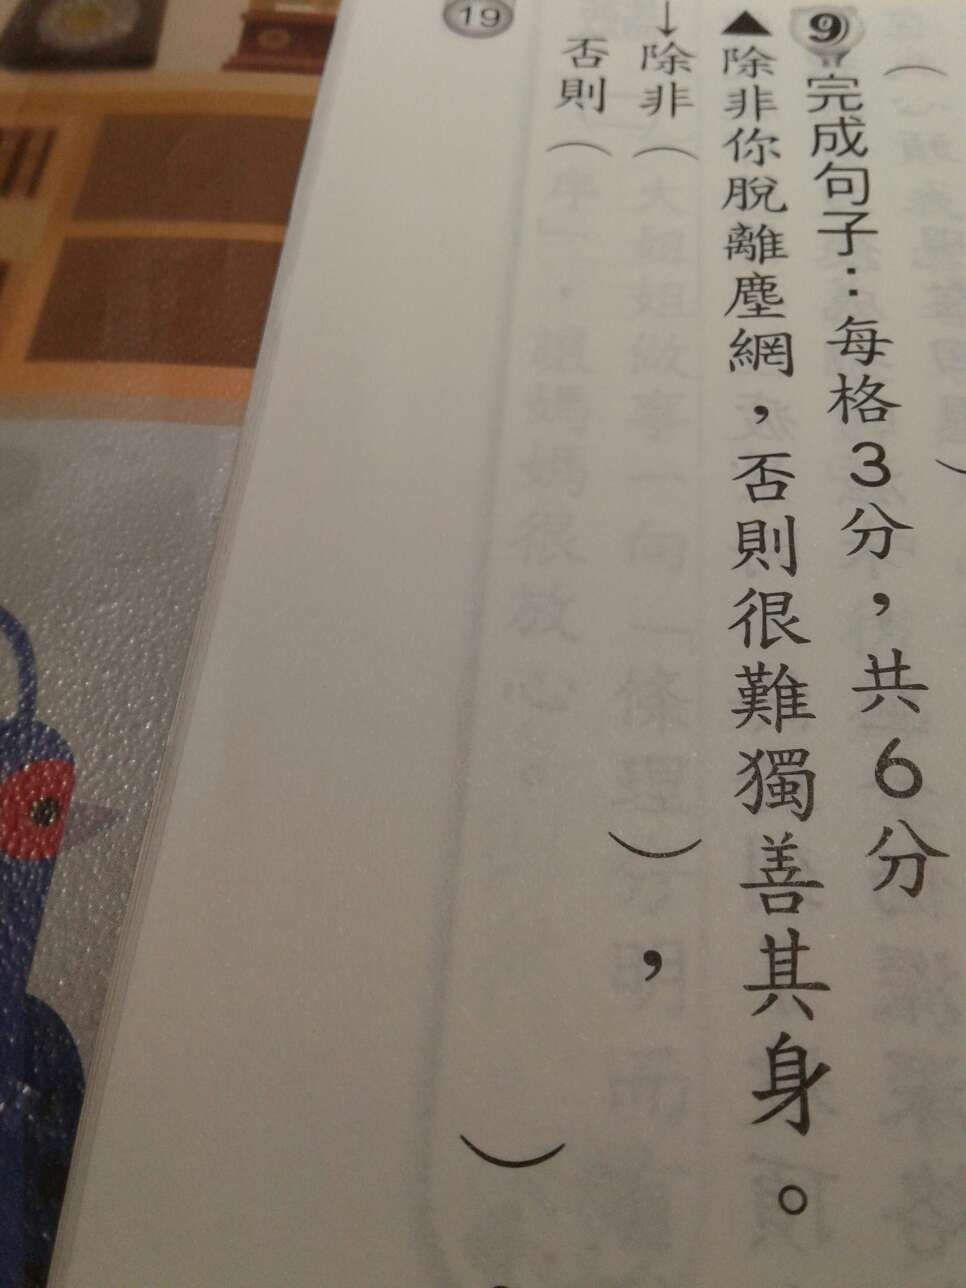 9完成句子:每格3分,共6分
▲除非你脫離塵網,否則很難獨善其身。
↓除非(),
否則()
19